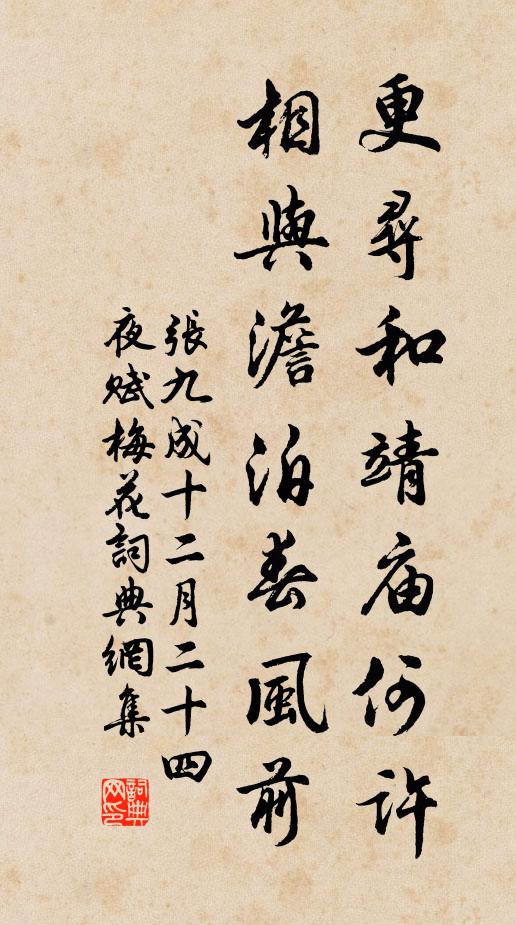 更尋和靖庙何許
相與澹泊春風前
張九成十二月二十四
夜赋梅花詞典網集
詞典
网印